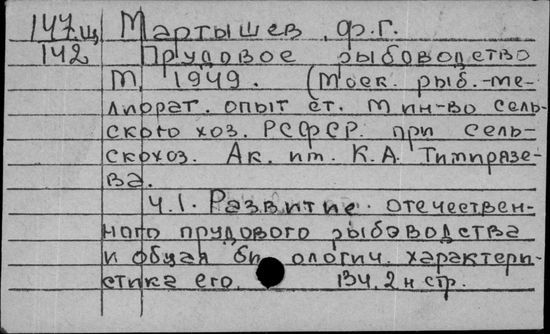 147щ Мартышев, Ф.Г.
142 Прудовое рыбоводство
М, 1949. (Моск. рыб.-ме-
лиорат. опыт ст. Мин-во сель-
ского хоз. РСФСР. при Сель-
скохоз. Ак. им. К.А. Тимирязе-
ва.
ч.1. Развитие отечествен-
ного прудового рыбоводства
и общая биологич. характери-
стика его. 134, 2 н стр.